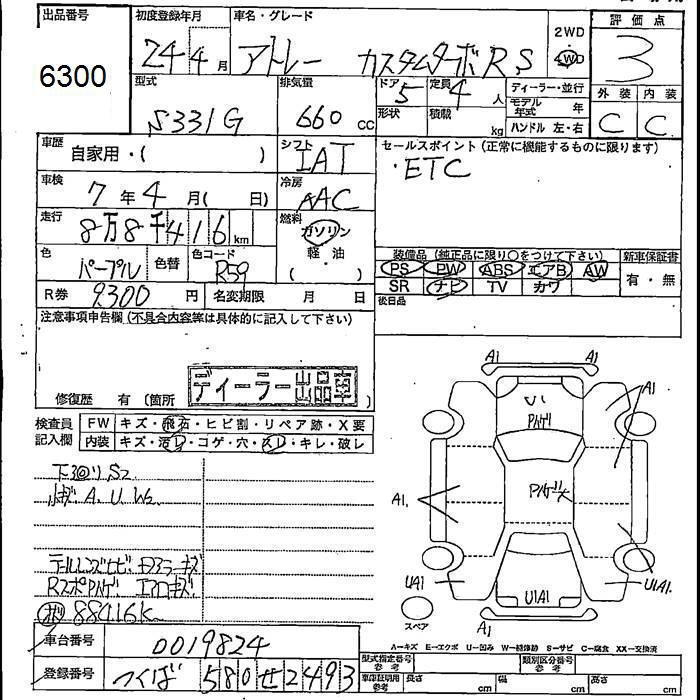 出品番号
6300
初度登録年月
24年4月
車名・グレード
アトレー カスタムターボRS
2WD
4WD
評価点
3
型式
S331G
排気量
660cc
ドア
5
定員
4人
形状
積載
kg
ディーラー・並行
モデル年式 年
ハンドル 左・右
外装
内装
C
C
車歴
自家用・( )
シフト
IAT
セールスポイント(正常に機能するものに限ります)
・ETC
車検
7年4月( 日)
冷房
AAC
走行
8万8千416km
燃料
ガソリン
軽・油
( )
色
パープル
色替
色コード
R59
装備品(純正品に限り○をつけて下さい)
新車保証書
PS PW ABS エアB AW
SR ナビ TV カワ
有・無
後日品
R券
9300円
名変期限 月 日
注意事項申告欄(不具合内容等は具体的に記入して下さい)
修復歴 有(箇所 )
ディーラー出品車
検査員記入欄
FW キズ・飛石・ヒビ割・リペア跡・X要
内装 キズ・汚レ・コゲ・穴・スレ・キレ・破レ
下回りS2
小キズ A. U. W2
テールレンズヒビ・ドアミラーキズ
RスポPハゲ エアロキズ
88416K
車台番号
0019824
登録番号
つくば580せ2493
A1
A1
い
Pハゲ
A1
A1.
Pハゲ大
UA1
U1A1
U1A1.
スペア
A1
A=キズ E=エクボ U=凹み W=補修跡 S=サビ C=腐食 XX=交換済
型式指定番号 参考
類別区分番号 参考
車庫証明用 参考
長さ cm
幅 cm
高さ cm